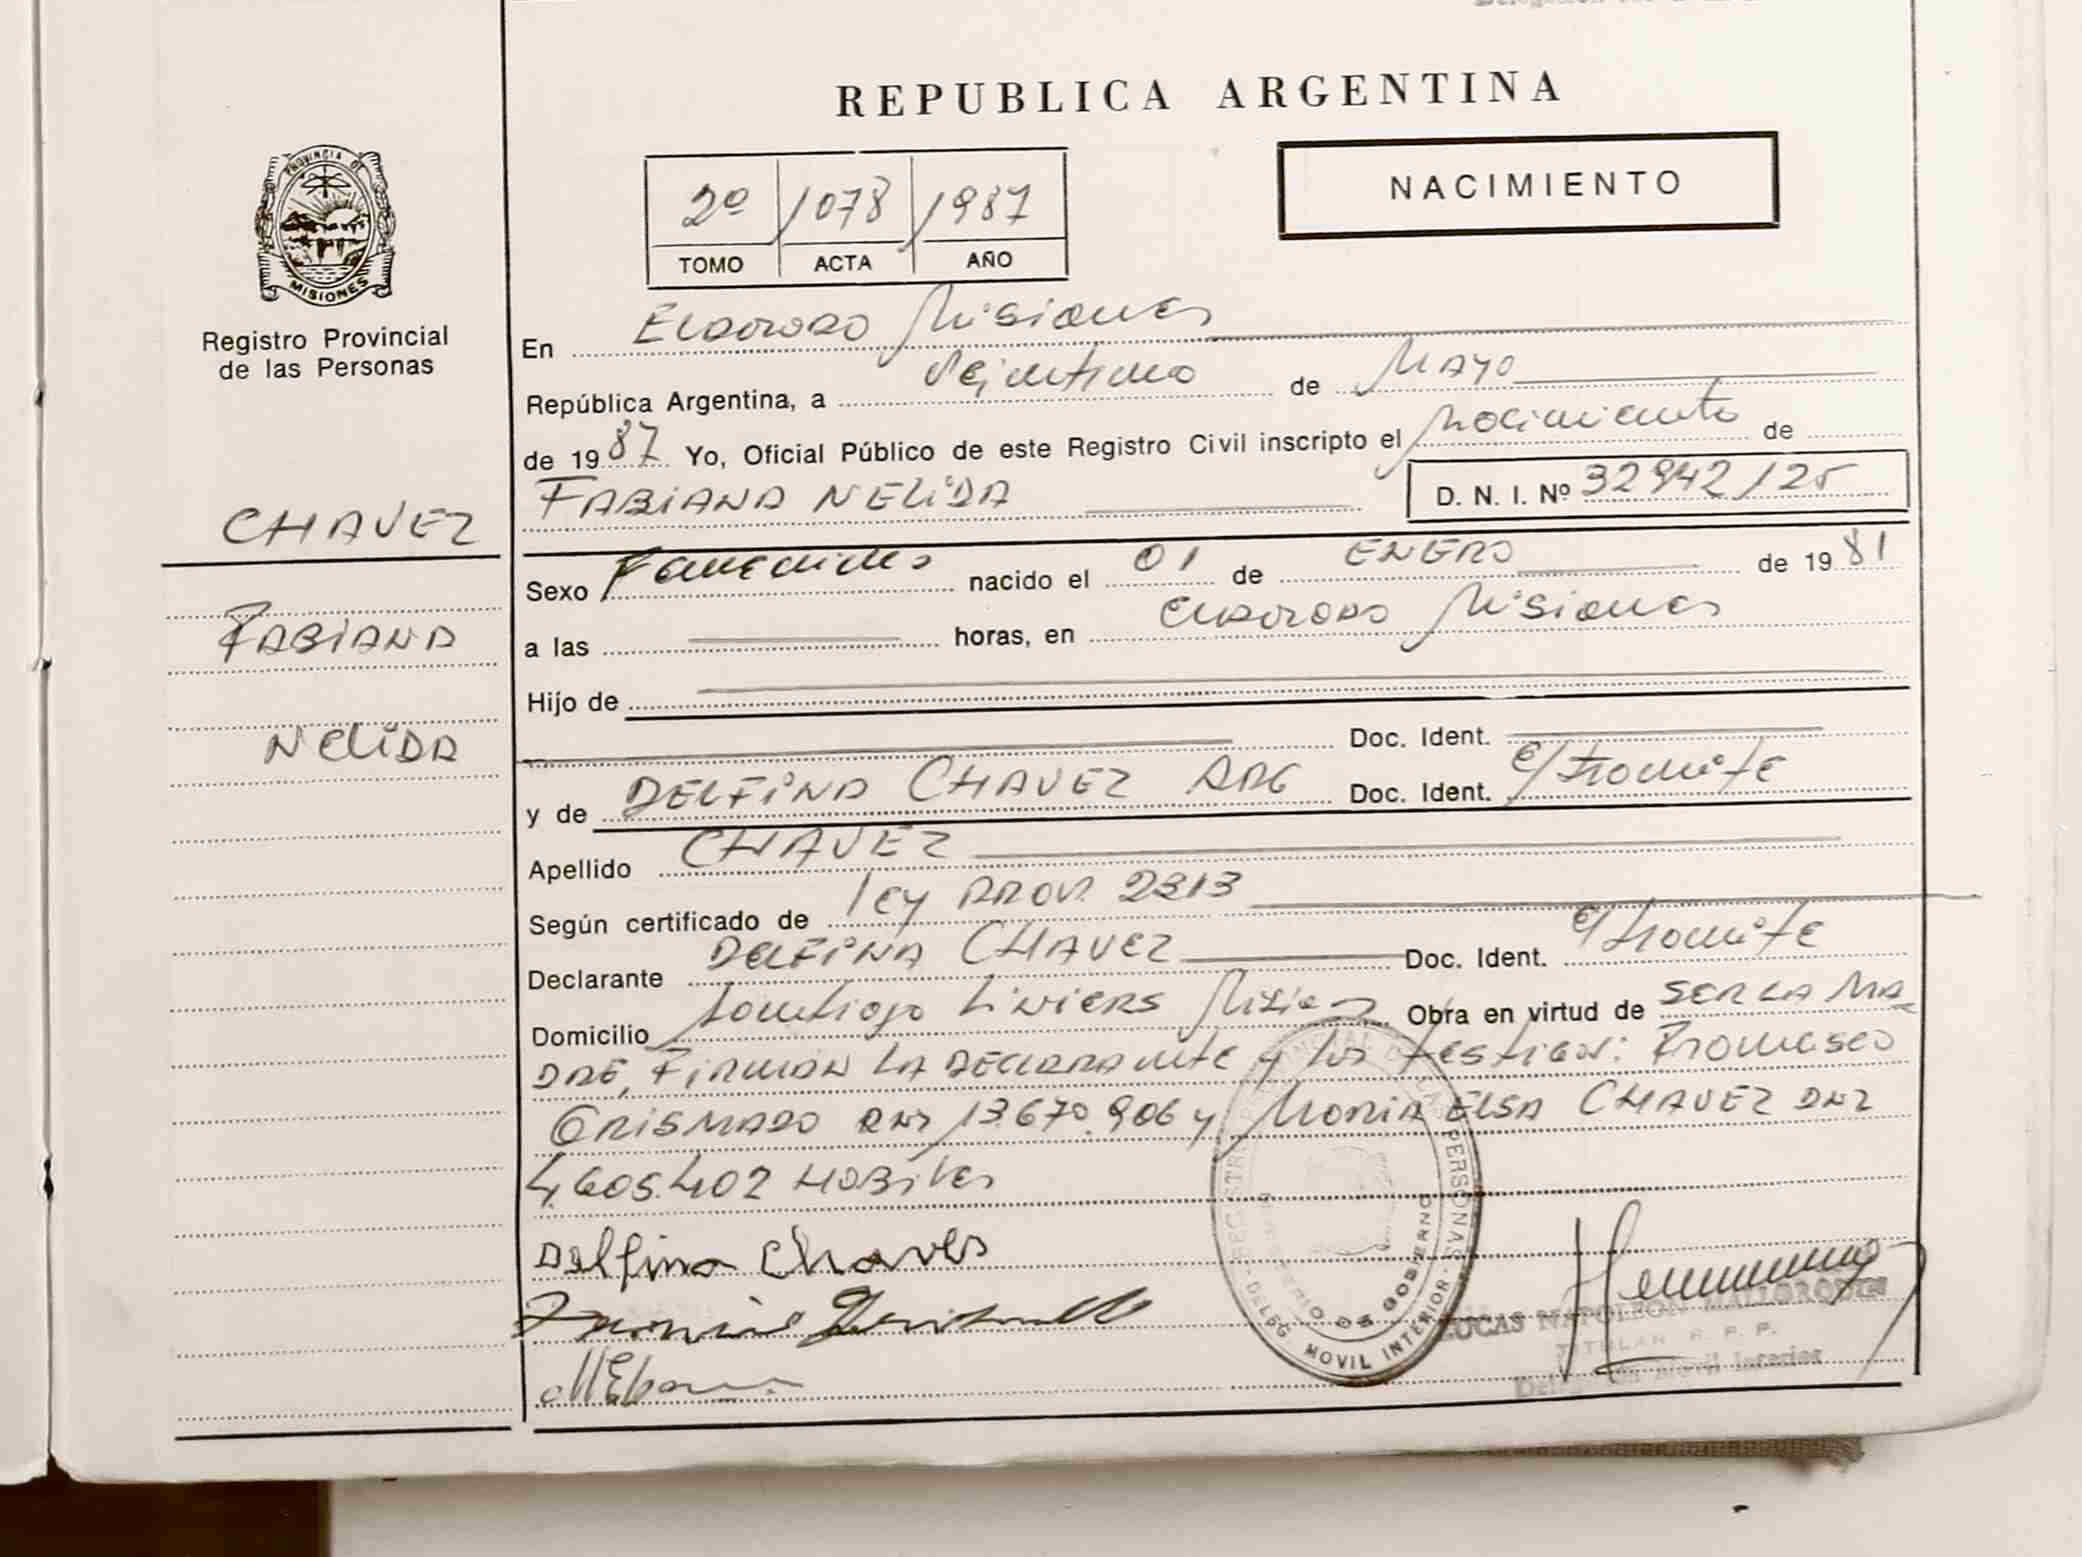 REPUBLICA ARGENTINA
NACIMIENTO
2º 1078 1987
TOMO ACTA AÑO
PROVINCIA DE
MISIONES
Registro Provincial
de las Personas
CHAVEZ
FABIANA
NELIDA
En ELDORADO Misiones
República Argentina, a de MAYO
de 1987 Yo, Oficial Público de este Registro Civil inscripto el Nacimiento de
FABIANA NELIDA D. N. I. Nº 32942125
Sexo Femenino nacido el 01 de ENERO de 1981
a las horas, en ELDORADO Misiones
Hijo de
Doc. Ident.
y de DELFINA CHAVEZ ARG Doc. Ident. e/tramite
Apellido CHAVEZ
Según certificado de ley PROV. 2313
Declarante DELFINA CHAVEZ Doc. Ident. e/tramite
Domicilio Santiago Liniers Obra en virtud de SER LA MA
DRE, FIRMAN LA DECLARANTE y los testigos:
GRISMADO DNI 13.670.906 y MARIA ELSA CHAVEZ DNI
4.605.402 HABILES
Delfina Chaves
REGISTRO PROVINCIAL DE LAS PERSONAS
MINISTERIO DE GOBIERNO
DELEG. MOVIL INTERIOR
LUCAS NAPOLEON MALLORQUIN
TITULAR R. P. P.
Delegación Movil Interior